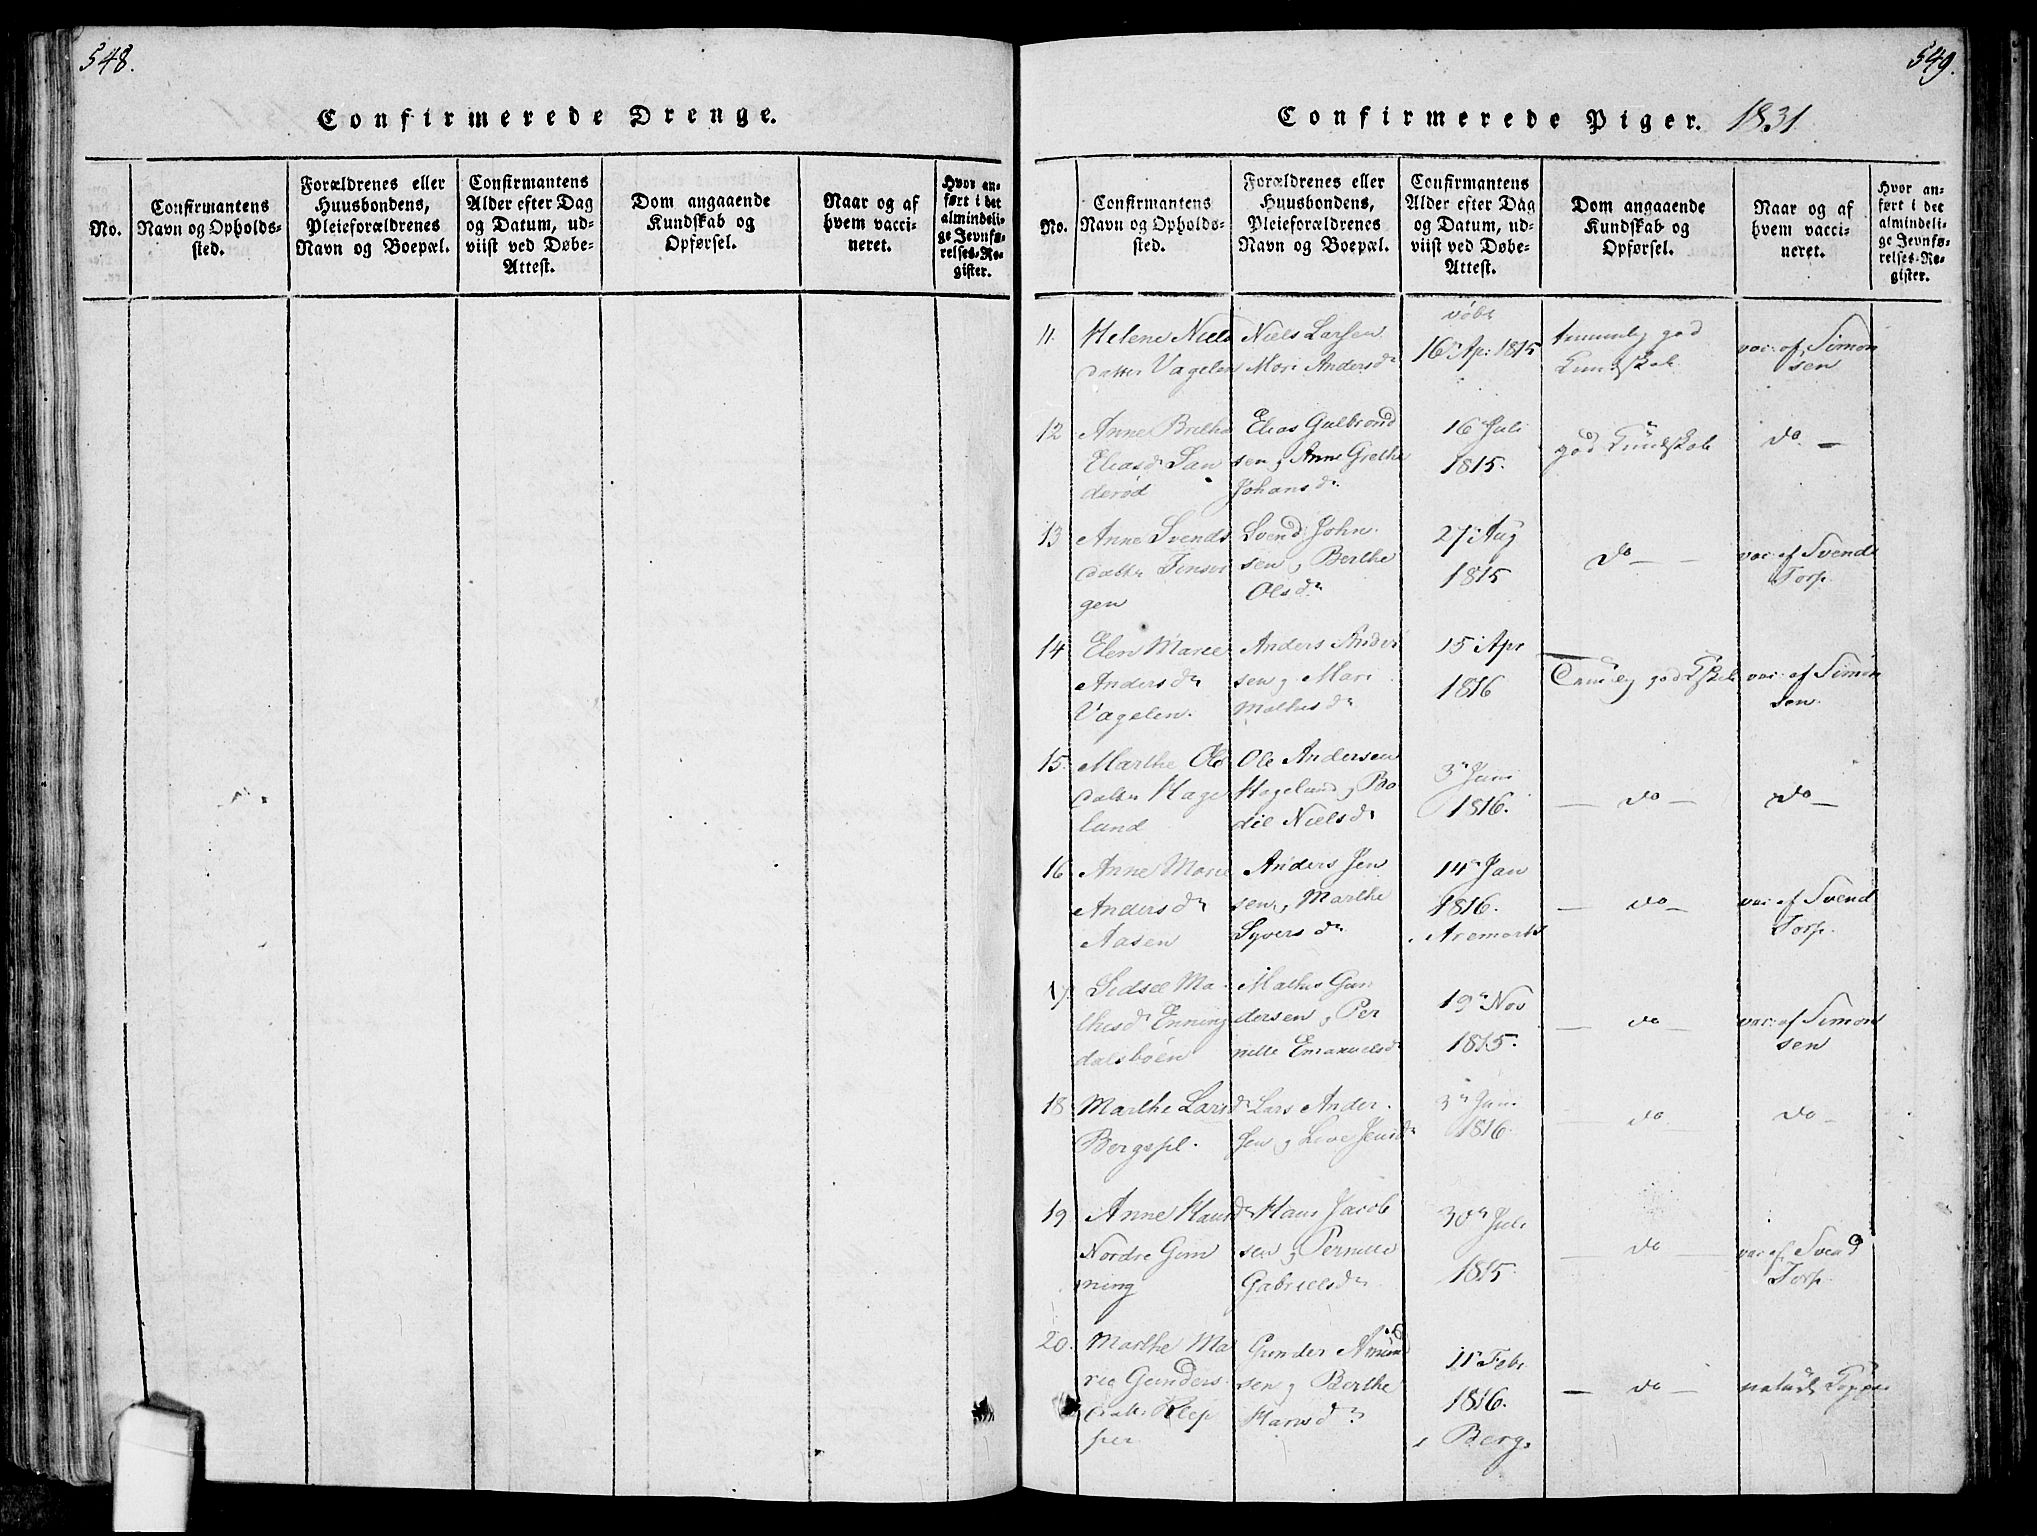 548.
Confirmerede Drenge.
No.
Confirmantens
Navn og Opholds-
sted.
Forældrenes eller
Huusbondens,
Pleieforældrenes
Navn og Boepæl.
Confirmantens
Alder efter Dag
og Datum, ud-
viist ved Døbe-
Attest.
Dom angaaende
Kundskab og
Opførsel.
Naar og af
hvem vacci-
neret.
Hvor an-
ført i det
almindeli-
ge Jevnfø-
relses-Re-
gister.
549.
Confirmerede Piger. 1831
No.
Confirmantens
Navn og Opholds-
sted.
Forældrenes eller
Huusbondens,
Pleieforældrenes
Navn og Boepæl.
Confirmantens
Alder efter Dag
og Datum, ud-
viist ved Døbe-
Attest.
Dom angaaende
Kundskab og
Opførsel.
Naar og af
hvem vacci-
neret.
Hvor an-
ført i det
almindeli-
ge Jevnfø-
relses-Re-
gister.
11.
Helene Niels
datter Vagelen
Niels Larsen
Mari Andersdr
16 Apr: 1815
temmelig god
Kundskab
vac: af Simon
sen
12
Anne
Eliasdr San
derød
Elias Gulbrand
sen, Anne Grethe
Johansdr
16 Juli
1815.
god Kundskab
do —
13
Anne Svends
datter
gen
Svend John
sen, Berthe
Olsdr
27 Aug
1815
do —
vac: af Svend
Torp.
14
Elen Marie
Andersdr
Vagelen.
Anders Ander
sen, Mari
Mathisdr
15 Apr
1816
god Kskab
vac: af Simon
sen.
15.
Marthe Ols
datter Hage
lund
Ole Andersen
Hagelund, Bo
dil Nielsdr
3 Juni
1816.
— do —
do —
16
Anne Marie
Andersdr
Aasen
Anders Jen
sen, Marthe
Syversdr
14 Jan
1816.
Aremark
— do —
vac: af Svend
Torp.
17.
Sidsel Ma-
thisdr Enning
dalsbøen
Mathis Gun
dersen, Per
nille Emanuelsdr
19 Nov
1815.
— do —
vac: af Simon
sen
18
Marthe Larsdr
Bergspl.
Lars Ander-
sen, Live Jensdr
3 Juni
1816.
— do —
do —
19
Anne Hansdr
Nordre Gim
ming
Hans Jacob
sen, Pernille
Gabrielsdr
30 Juli
1815.
— do —
vac: af Svend
Torp.
20.
Marthe Ma
rie Gunders
datter Klep
per
Gunder Amund
sen, Berthe
Hansdr
11 Febr
1816.
i Berg.
— do —
naturl: Kopper